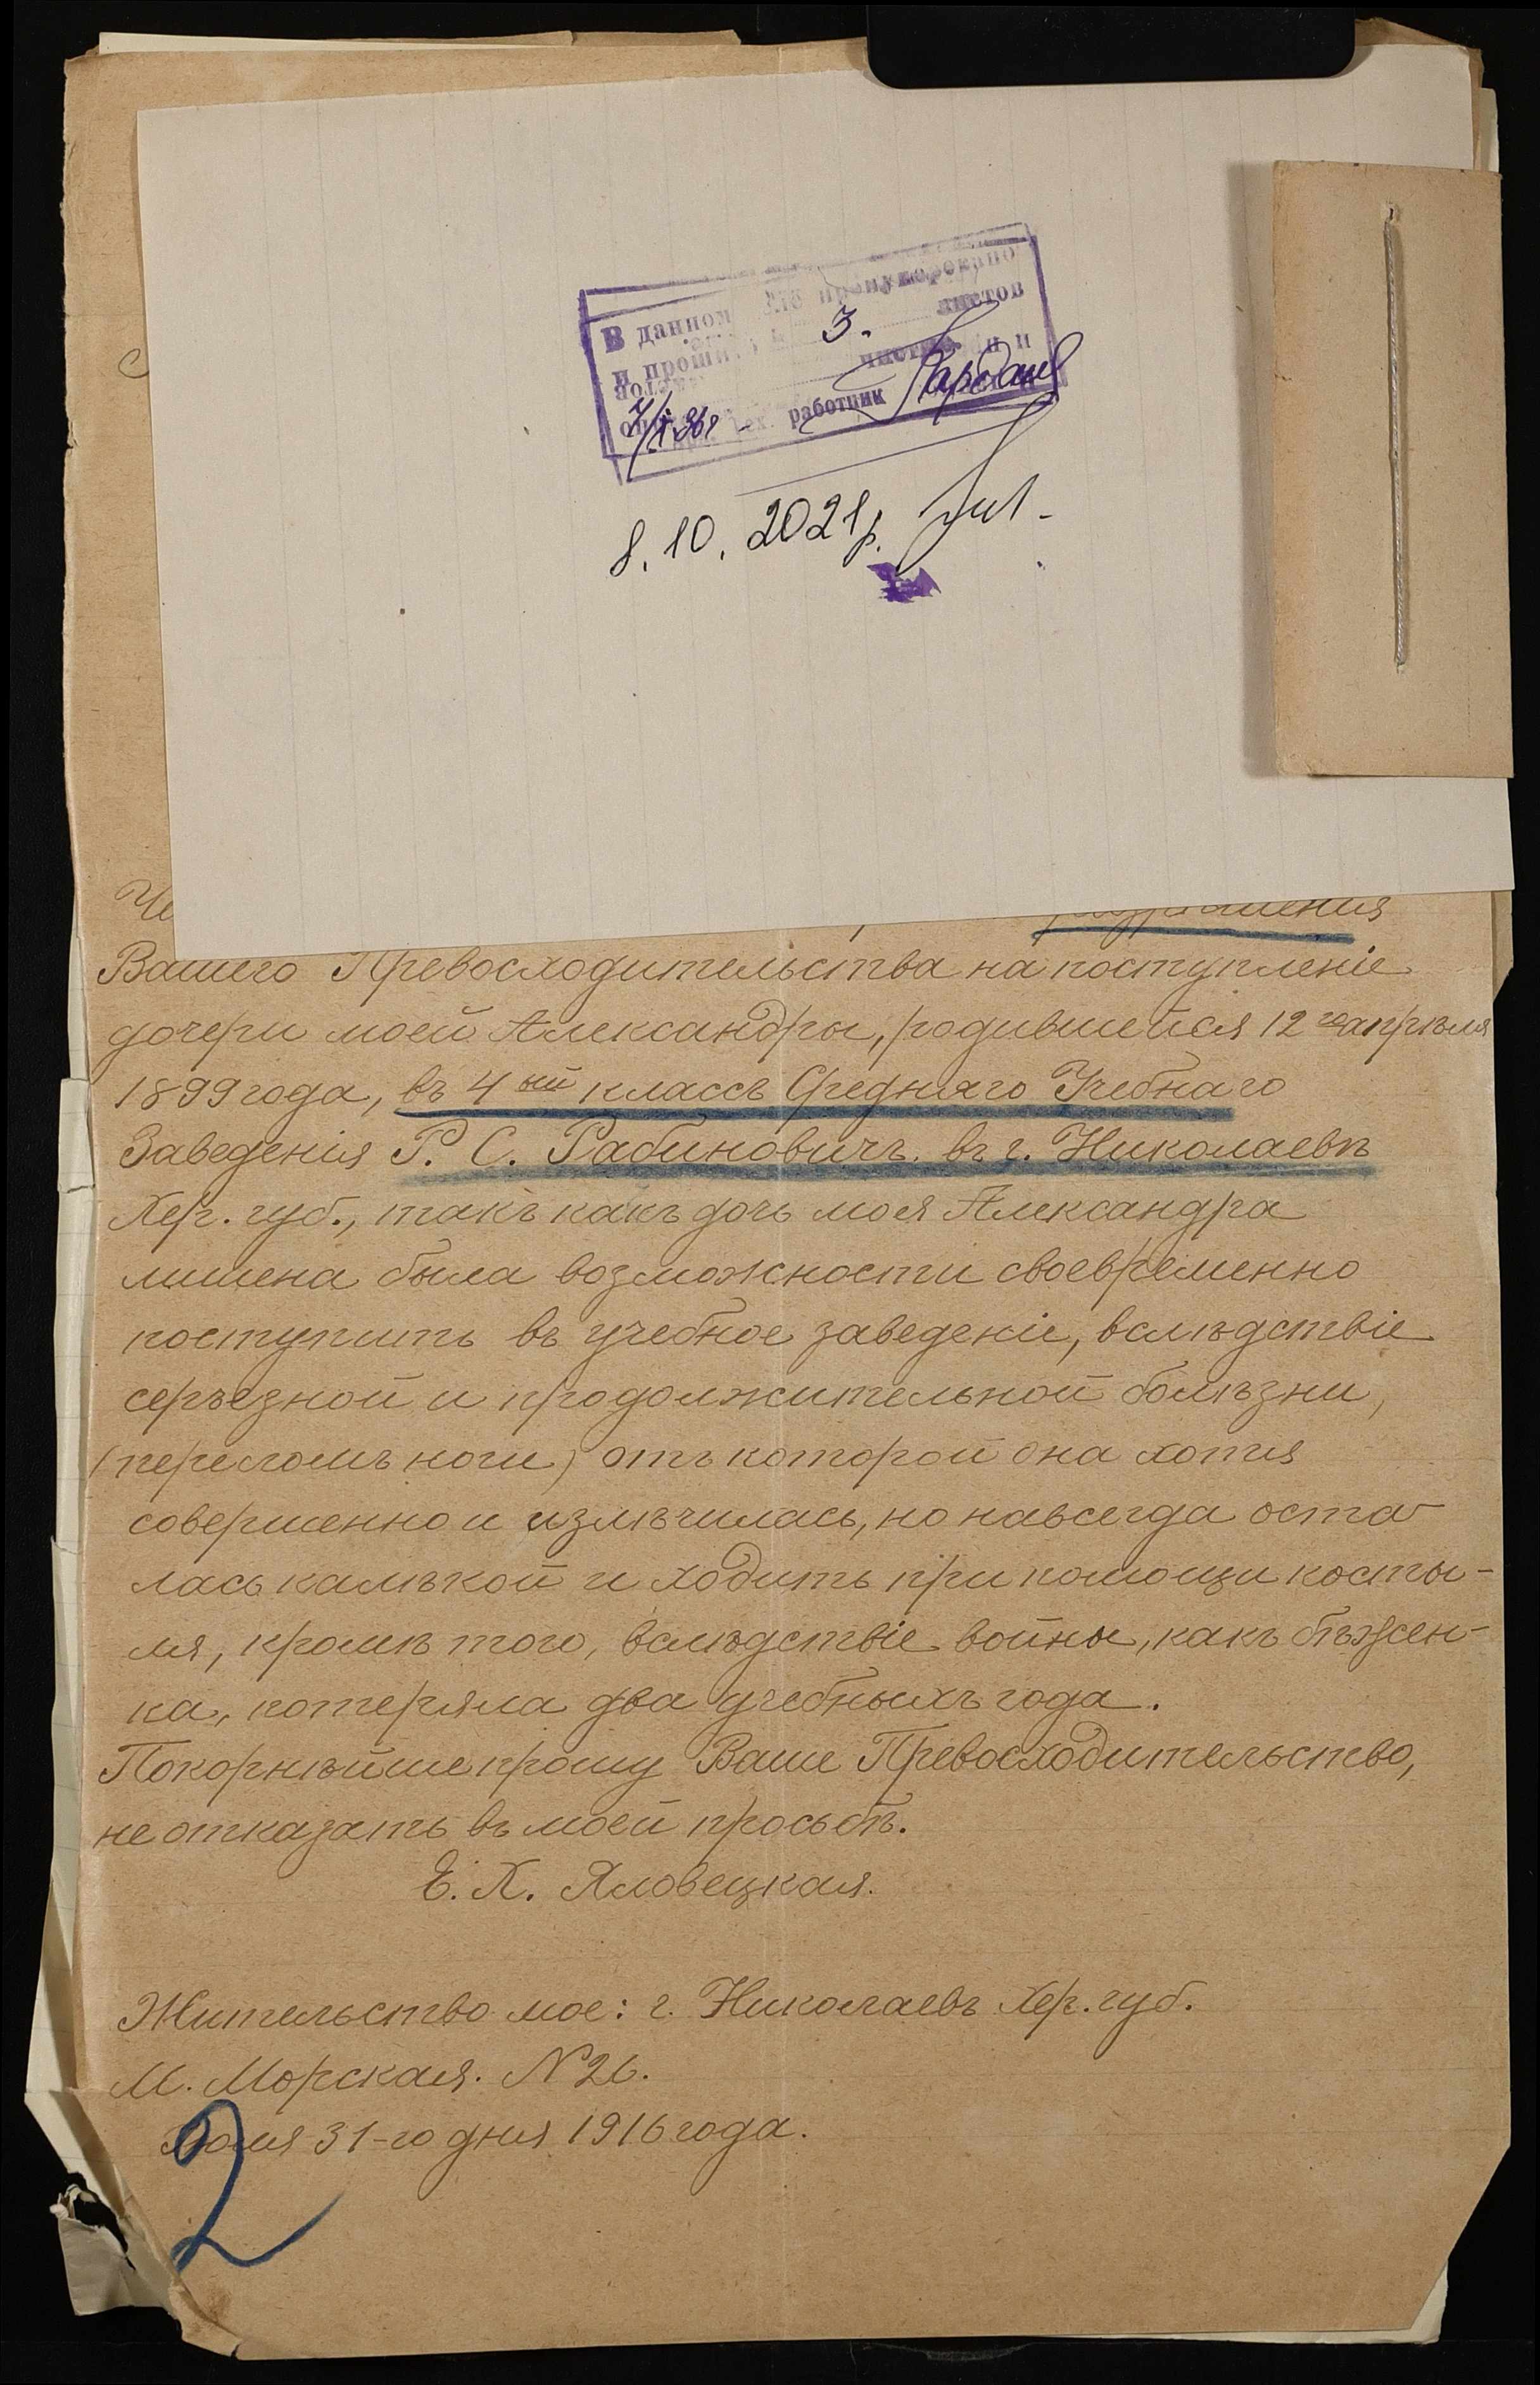 В данном
пронумеровано
и прошито 3. листов
работник
8. 10. 2021р.
разрѣшенія
Вашего Превосходительства на поступленіе
дочери моей Александры, родившейся 12 го апрѣля
1899 года, въ 4 ый классъ Средняго Учебнаго
Заведенія Р. С. Рабиновичъ. въ г. Николаевѣ
Хер. губ., такъ какъ дочь моя Александра
лишена была возможности своевременно
поступить въ учебное заведеніе, вслѣдствіе
серьезной и продолжительной болѣзни,
(переломъ ноги) отъ которой она хотя
совершенно и излѣчилась, но навсегда оста-
лась калѣкой и ходитъ при помощи косты-
ля, кромѣ того, вслѣдствіе войны, какъ бѣжен-
ка, потеряла два учебныхъ года.
Покорнѣйше прошу Ваше Превосходительство,
не отказать въ моей просьбѣ.
Е. К. Яловецкая.
Жительство мое: г. Николаевъ Хер. губ.
М. Морская. N 26.
Июля 31-го дня 1916 года.
2